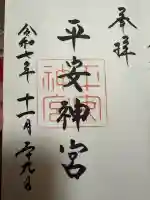 奉拝
平安神宮
令和七年十一月二十九日